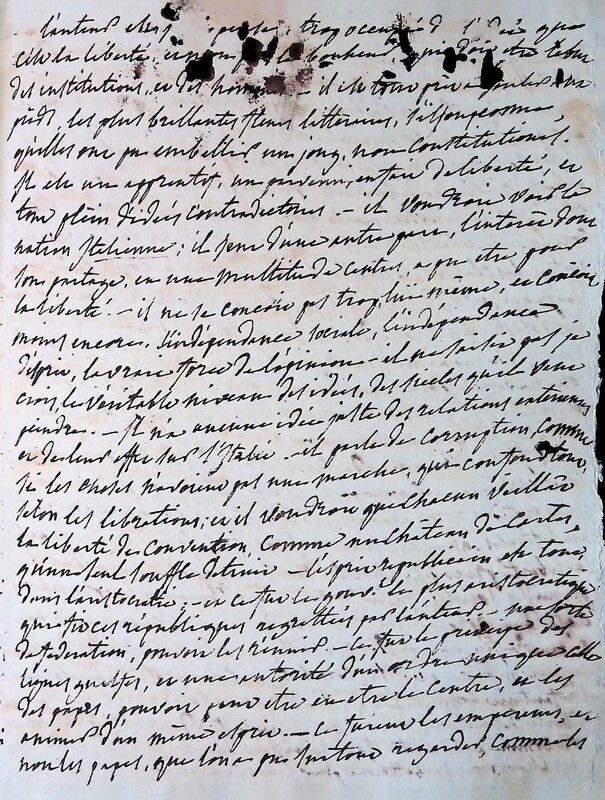 l'auteur est trop occupé de l'idée que
c'est la liberté, et non pas le bonheur, qui doit être le but
des institutions, et des hommes — il
pieds les plus brillantes fleurs littéraires, s'il soupçonne,
qu'elles ont pu embellir un joug, non constitutionnel.
Il est un apprentif, un parvenu, en fait de liberté, et
tout plein d'idées contradictoires. — il voudroit voir la
nation Italienne; il sent d'une autre part, l'intérêt dont
son partage, en une multitude de centres, a pu être pour
la liberté. — il ne se conçoit pas trop lui même, et conçoit
moins encore, l'indépendance sociale, l'indépendance
d'esprit, la vraie force de l'opinion — il ne saisit pas, je
crois, le véritable niveau des idées, des siecles qu'il veut
peindre. — Il n'a aucune idée juste des relations extérieures
et de leur effet sur l'Italie — il parle de corruption, comme
si les choses n'avoient pas une marche, qui confond tout,
selon les vibrations; et il voudroit que chacun veillât
la liberté de convention, comme un château de cartes,
qu'un seul souffle détruit — l'esprit républicain est tout
dans l'aristocratie; — et ce fut le gouvt. le plus aristocratique
que ces républiques regrettées par l'auteur — une sorte
de fédération, pouvoit les réunir. — Ce fut le principe des
ligues guelfes, et une autorité d'un ordre unique celle
des papes, pouvoit peut être en être le centre, et les
animer d'un même esprit. — Ce furent les empereurs, et
non les papes, que l'on a pu surtout regarder, comme les